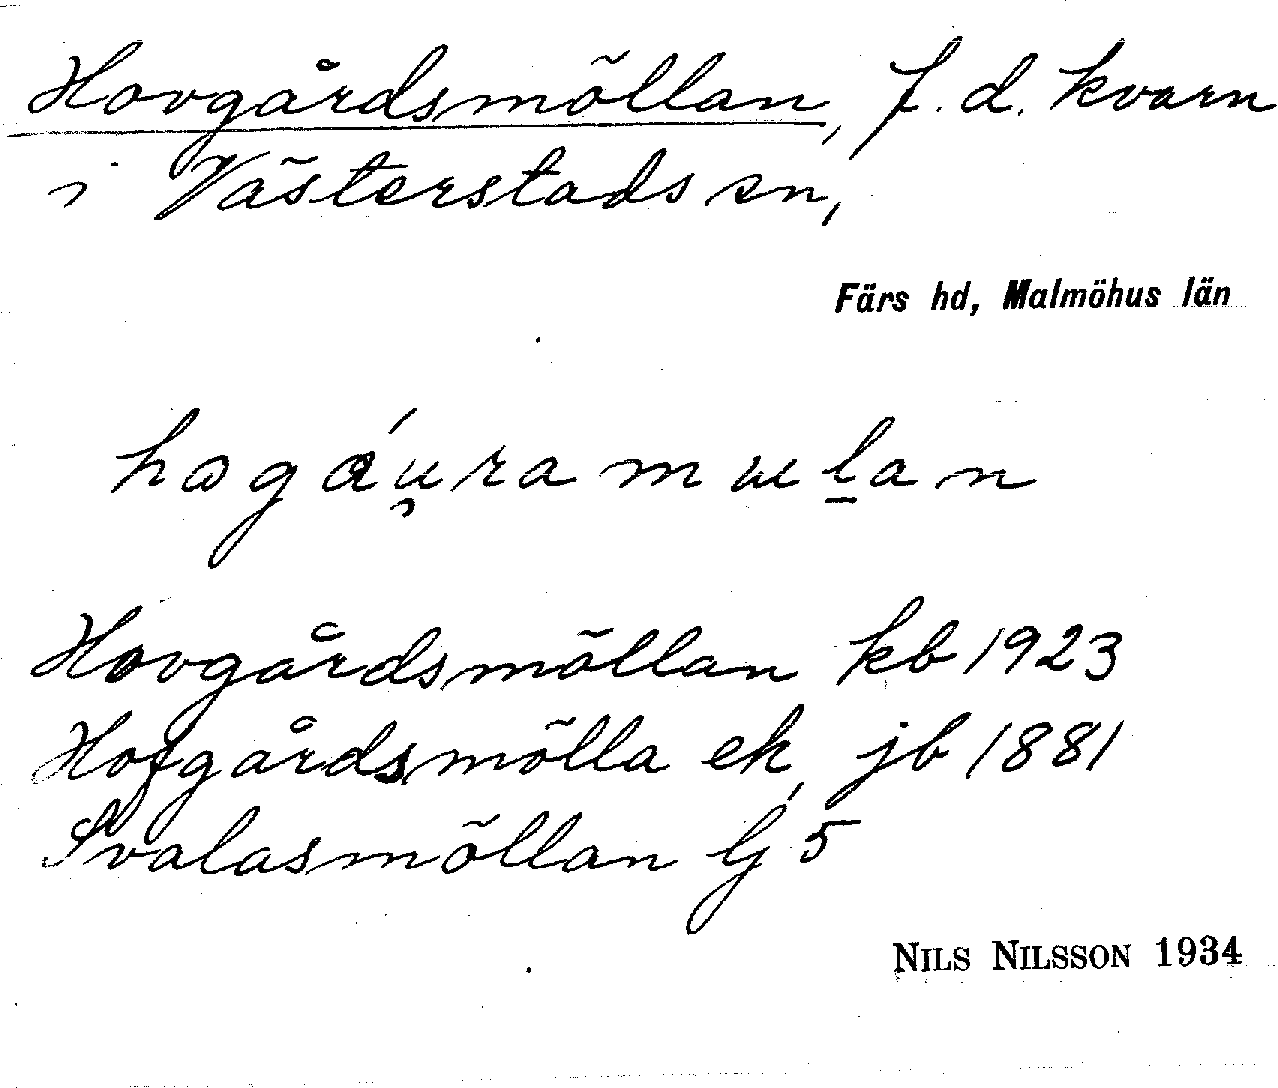 Hovgårdsmöllan, f.d. kvarn
i Västerstads sn,
Färs hd, Malmöhus län
Hovgårdsmöllan kb 1923
Hofgårdsmölla ek, jb 1881
Svalasmöllan Lj 5
NILS NILSSON 1934